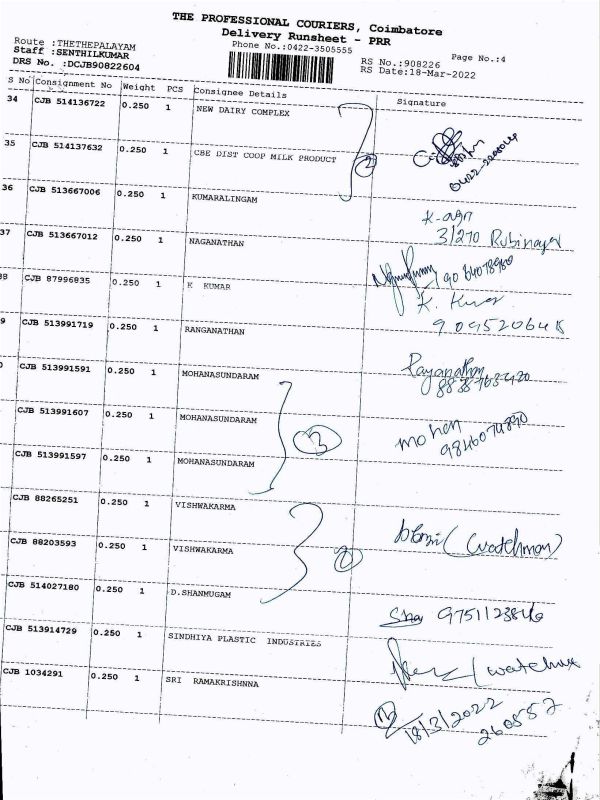 THE PROFESSIONAL COURIERS, Coimbatore
Delivery Runsheet - PRR
Phone No.:0422-3505555
Route :THETHEPALAYAM
Staff :SENTHILKUMAR
DRS No. :DCJB90822604
Page No.:4
RS No.:908226
RS Date:18-Mar-2022
S No Consignment No Weight PCS Consignee Details Signature
34 CJB 514136722 0.250 1 NEW DAIRY COMPLEX
35 CJB 514137632 0.250 1 CBE DIST COOP MILK PRODUCT
2
36 CJB 513667006 0.250 1 KUMARALINGAM
31270 Rubinagar
37 CJB 513667012 0.250 1 NAGANATHAN
38 CJB 87996835 0.250 1 K KUMAR
K. Kumar
9 CJB 513991719 0.250 1 RANGANATHAN
0 CJB 513991591 0.250 1 MOHANASUNDARAM
CJB 513991607 0.250 1 MOHANASUNDARAM
3
mohan
9846079890
CJB 513991597 0.250 1 MOHANASUNDARAM
CJB 88265251 0.250 1 VISHWAKARMA
(watchman)
CJB 88203593 0.250 1 VISHWAKARMA
CJB 514027180 0.250 1 D.SHANMUGAM
Sha 9751123846
CJB 513914729 0.250 1 SINDHIYA PLASTIC INDUSTRIES
CJB 1034291 0.250 1 SRI RAMAKRISHNNA
18/3/2022
260557